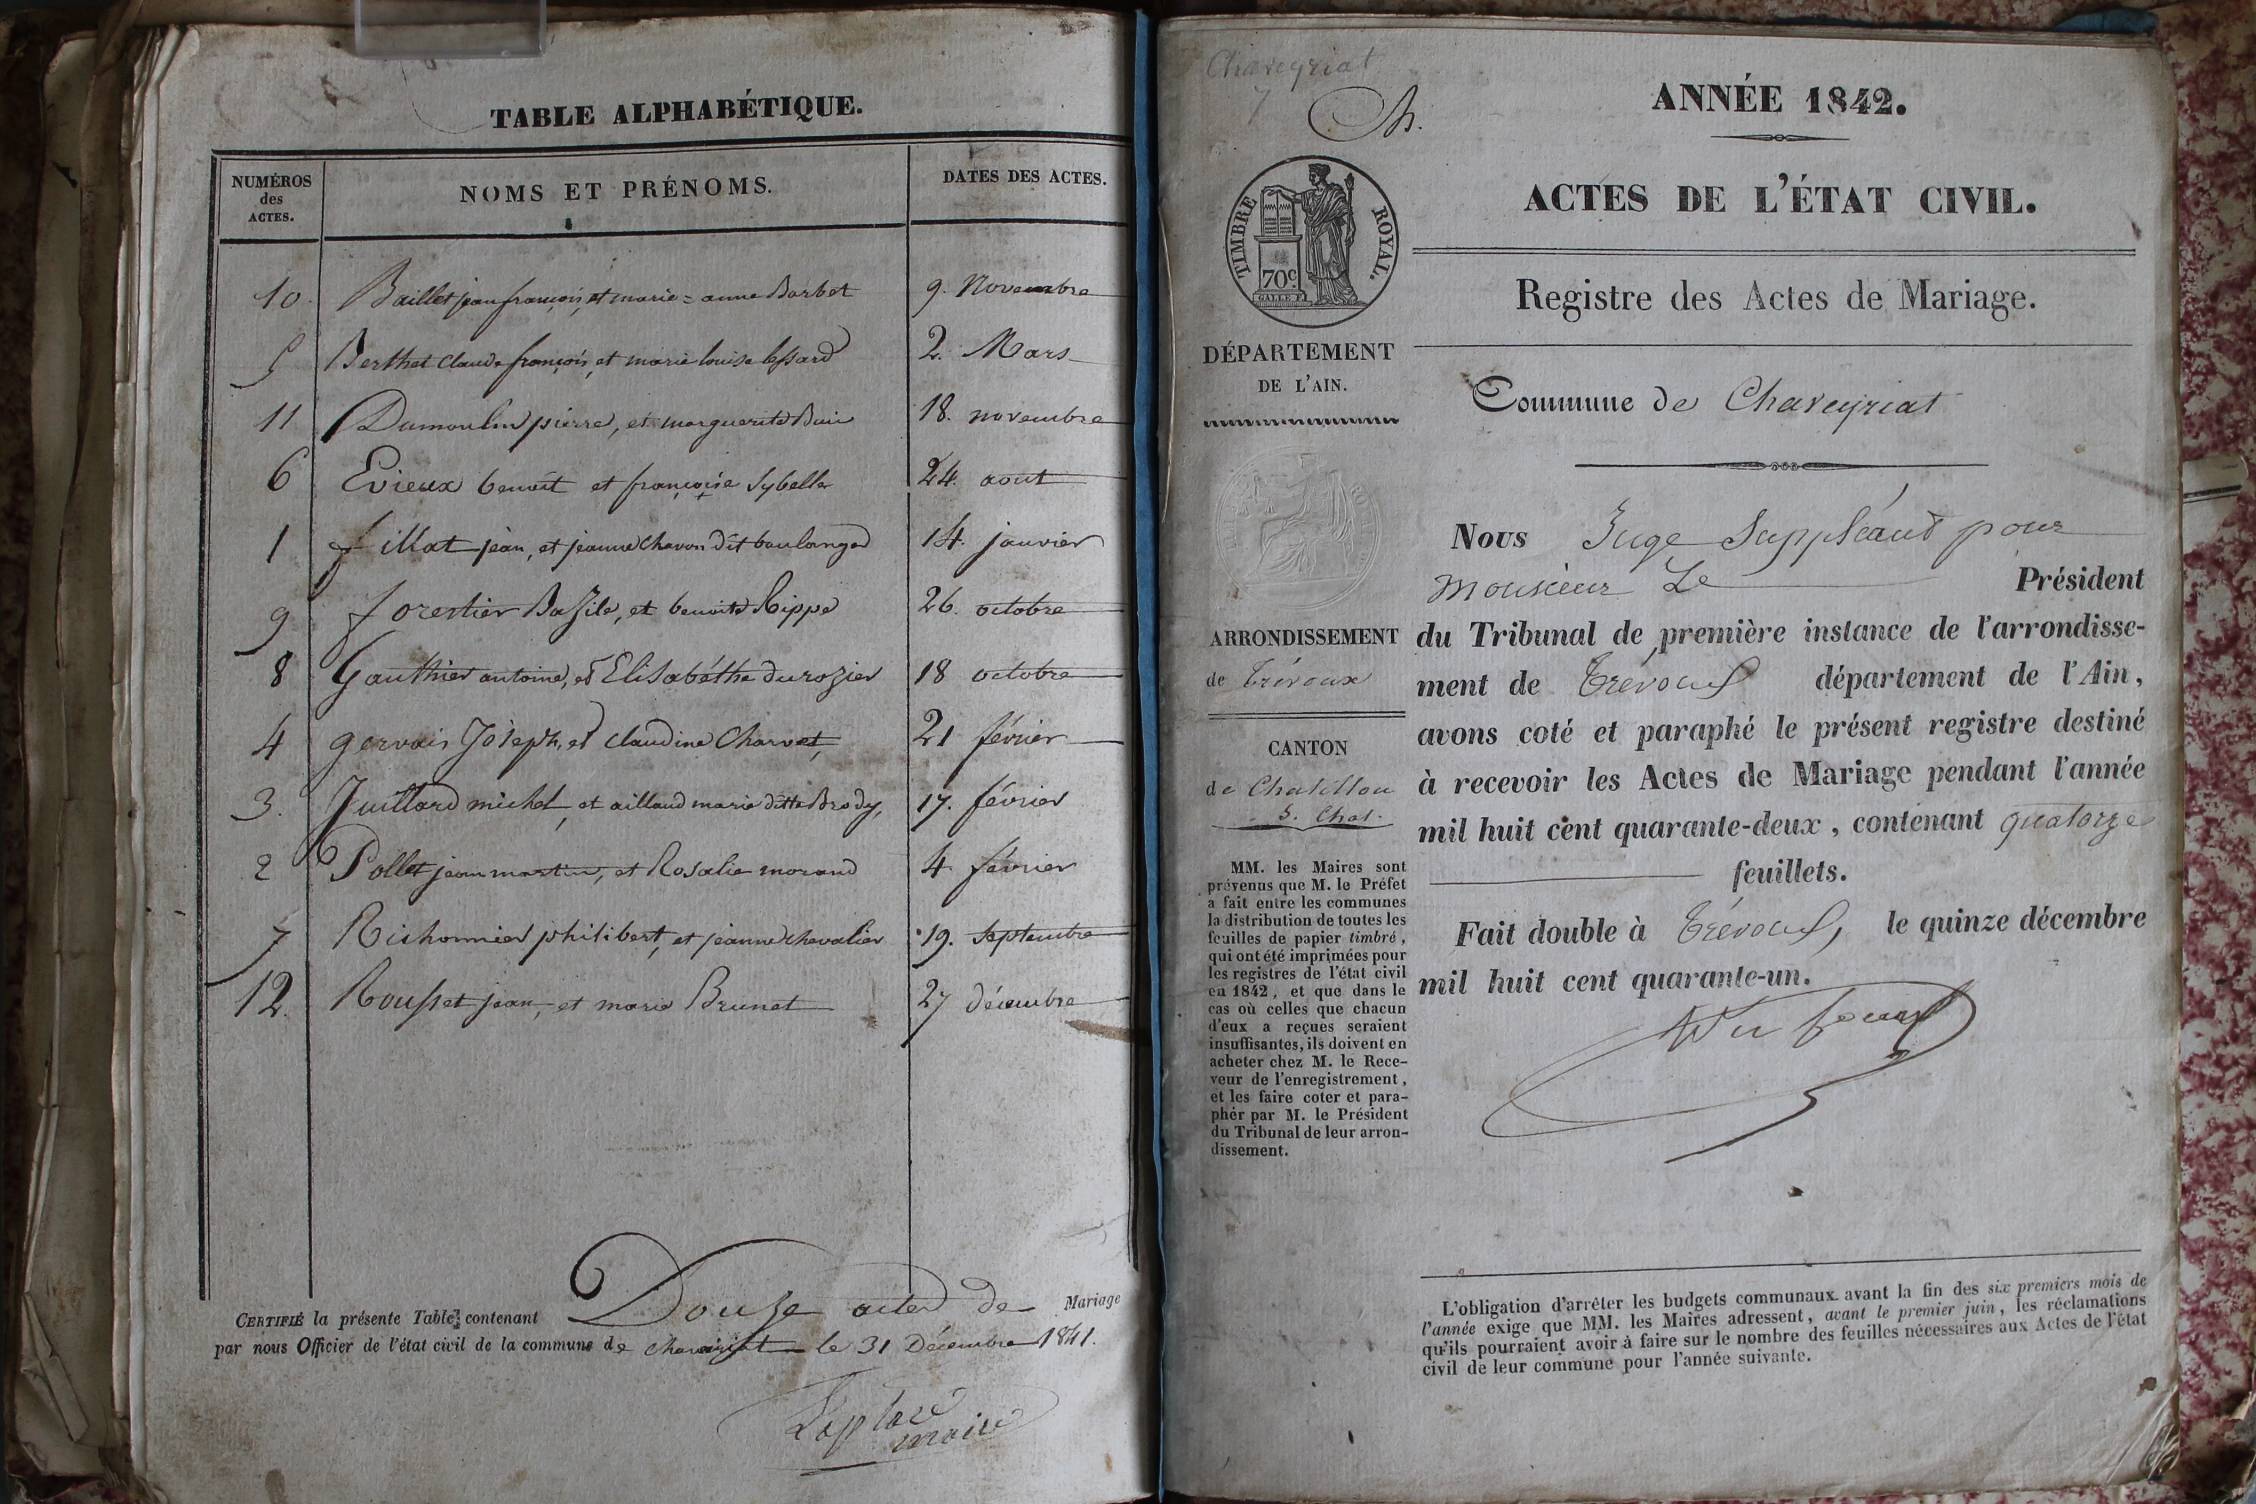 TABLE ALPHABÉTIQUE.
NUMÉROS des ACTES. NOMS ET PRÉNOMS. DATES DES ACTES.
10. Baillet jean françois, et marie = anne Barbet 9. Novembre
5 Berthet Claude françois, et marie louise lessard 2. Mars
11 Dumoulin pierre, et marguerite Buir 18. novembre
6 Evieux benoit et françoise Sybelle 24. aout
1 fillat jean, et jeanne Chavon dit boulanger 14. janvier
9 forestier Bazile, et benoite Rippe 26. octobre
8 Gauthier antoine, et Elisabéthe durozier 18 octobre
4 gervais Joseph, et claudine Charvet, 21 février
3. Juillard michel, et aillaud marie ditte Brody, 17. février
2 Pollet jean martin, et Rosalie morand 4 février
7 Richonnier philibert, et jeanne chevalier 19. Septembre
12. Rousset jean, et marie Brunet 27 décembre
CERTIFIÉ la présente Table contenant Douze actes de Mariage
par nous Officier de l'état civil de la commune de chaveyriat le 31 Décembre 1841.
maire
Chaveyriat
7
Ch.
ANNÉE 1842.
TIMBRE ROYAL.
70c.
ACTES DE L'ÉTAT CIVIL.
Registre des Actes de Mariage.
DÉPARTEMENT
DE L'AIN.
Commune de Chaveyriat
ARRONDISSEMENT
de Trévoux
CANTON
de Chatillon
S. Chal.
MM. les Maires sont
prévenus que M. le Préfet
a fait entre les communes
la distribution de toutes les
feuilles de papier timbré,
qui ont été imprimées pour
les registres de l'état civil
en 1842, et que dans le
cas où celles que chacun
d'eux a reçues seraient
insuffisantes, ils doivent en
acheter chez M. le Rece-
veur de l'enregistrement,
et les faire coter et para-
pher par M. le Président
du Tribunal de leur arron-
dissement.
Nous Juge Suppléant pour
Monsieur Le Président
du Tribunal de première instance de l'arrondisse-
ment de Trévoux département de l'Ain,
avons coté et paraphé le présent registre destiné
à recevoir les Actes de Mariage pendant l'année
mil huit cent quarante-deux, contenant quatorze
feuillets.
Fait double à Trévoux, le quinze décembre
mil huit cent quarante-un.
L'obligation d'arrêter les budgets communaux avant la fin des six premiers mois de
l'année exige que MM. les Maires adressent, avant le premier juin, les réclamations
qu'ils pourraient avoir à faire sur le nombre des feuilles nécessaires aux Actes de l'état
civil de leur commune pour l'année suivante.